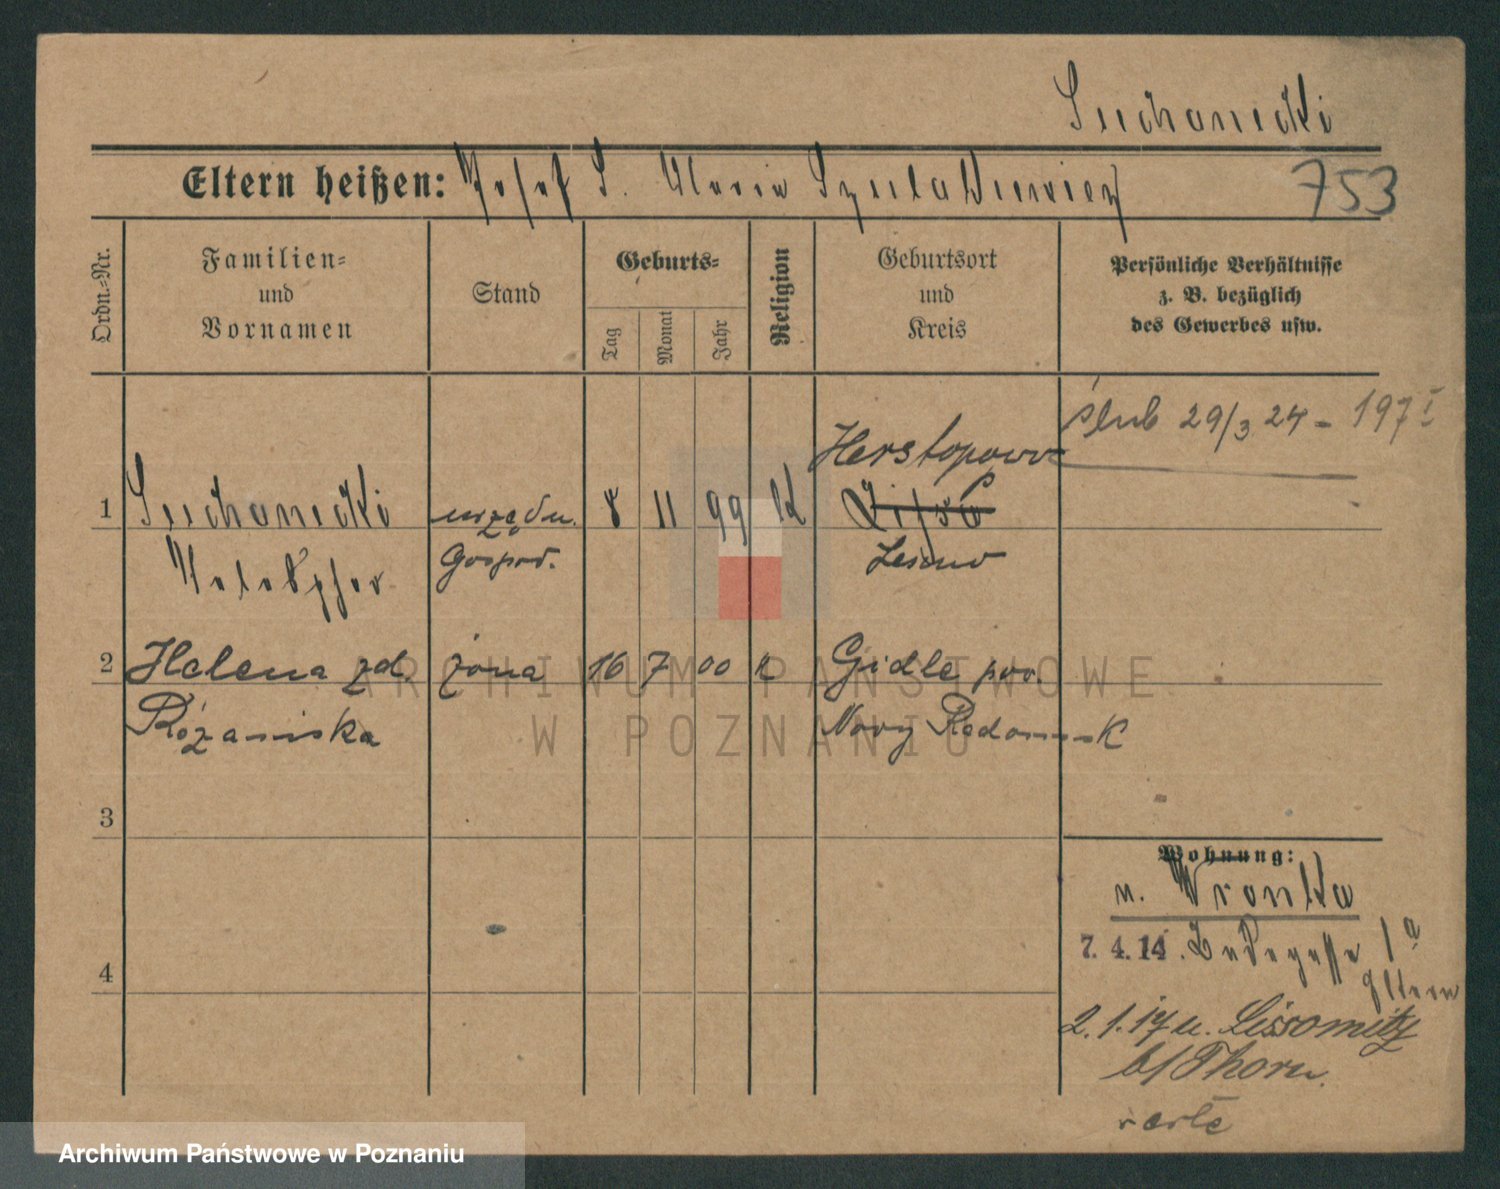 Suchanecki
Eltern heißen: Josef S. Maria Szulakiewicz
753
Ordn.-Nr.
Familien=
und
Vornamen
Stand
Geburts=
Tag
Monat
Jahr
Religion
Geburtsort
und
Kreis
Persönliche Verhältnisse
z. B. bezüglich
des Gewerbes usw.
ślub 29/3 24 - 197 I
Herstopowo
1 Suchanecki urzędn. 8 11 99 K
Gospod.
Leszno
2 Helena zd. żona 16 7 00 K Gidle pow.
Różańska Nowy Radomsk
3
4
Wohnung:
n. Wronke
7. 4. 14. 1a
Eltern
2. 1. 17 n. Lissomitz
b/Thorn.
ARCHIWUM PAŃSTWOWE
W POZNANIU
Archiwum Państwowe w Poznaniu